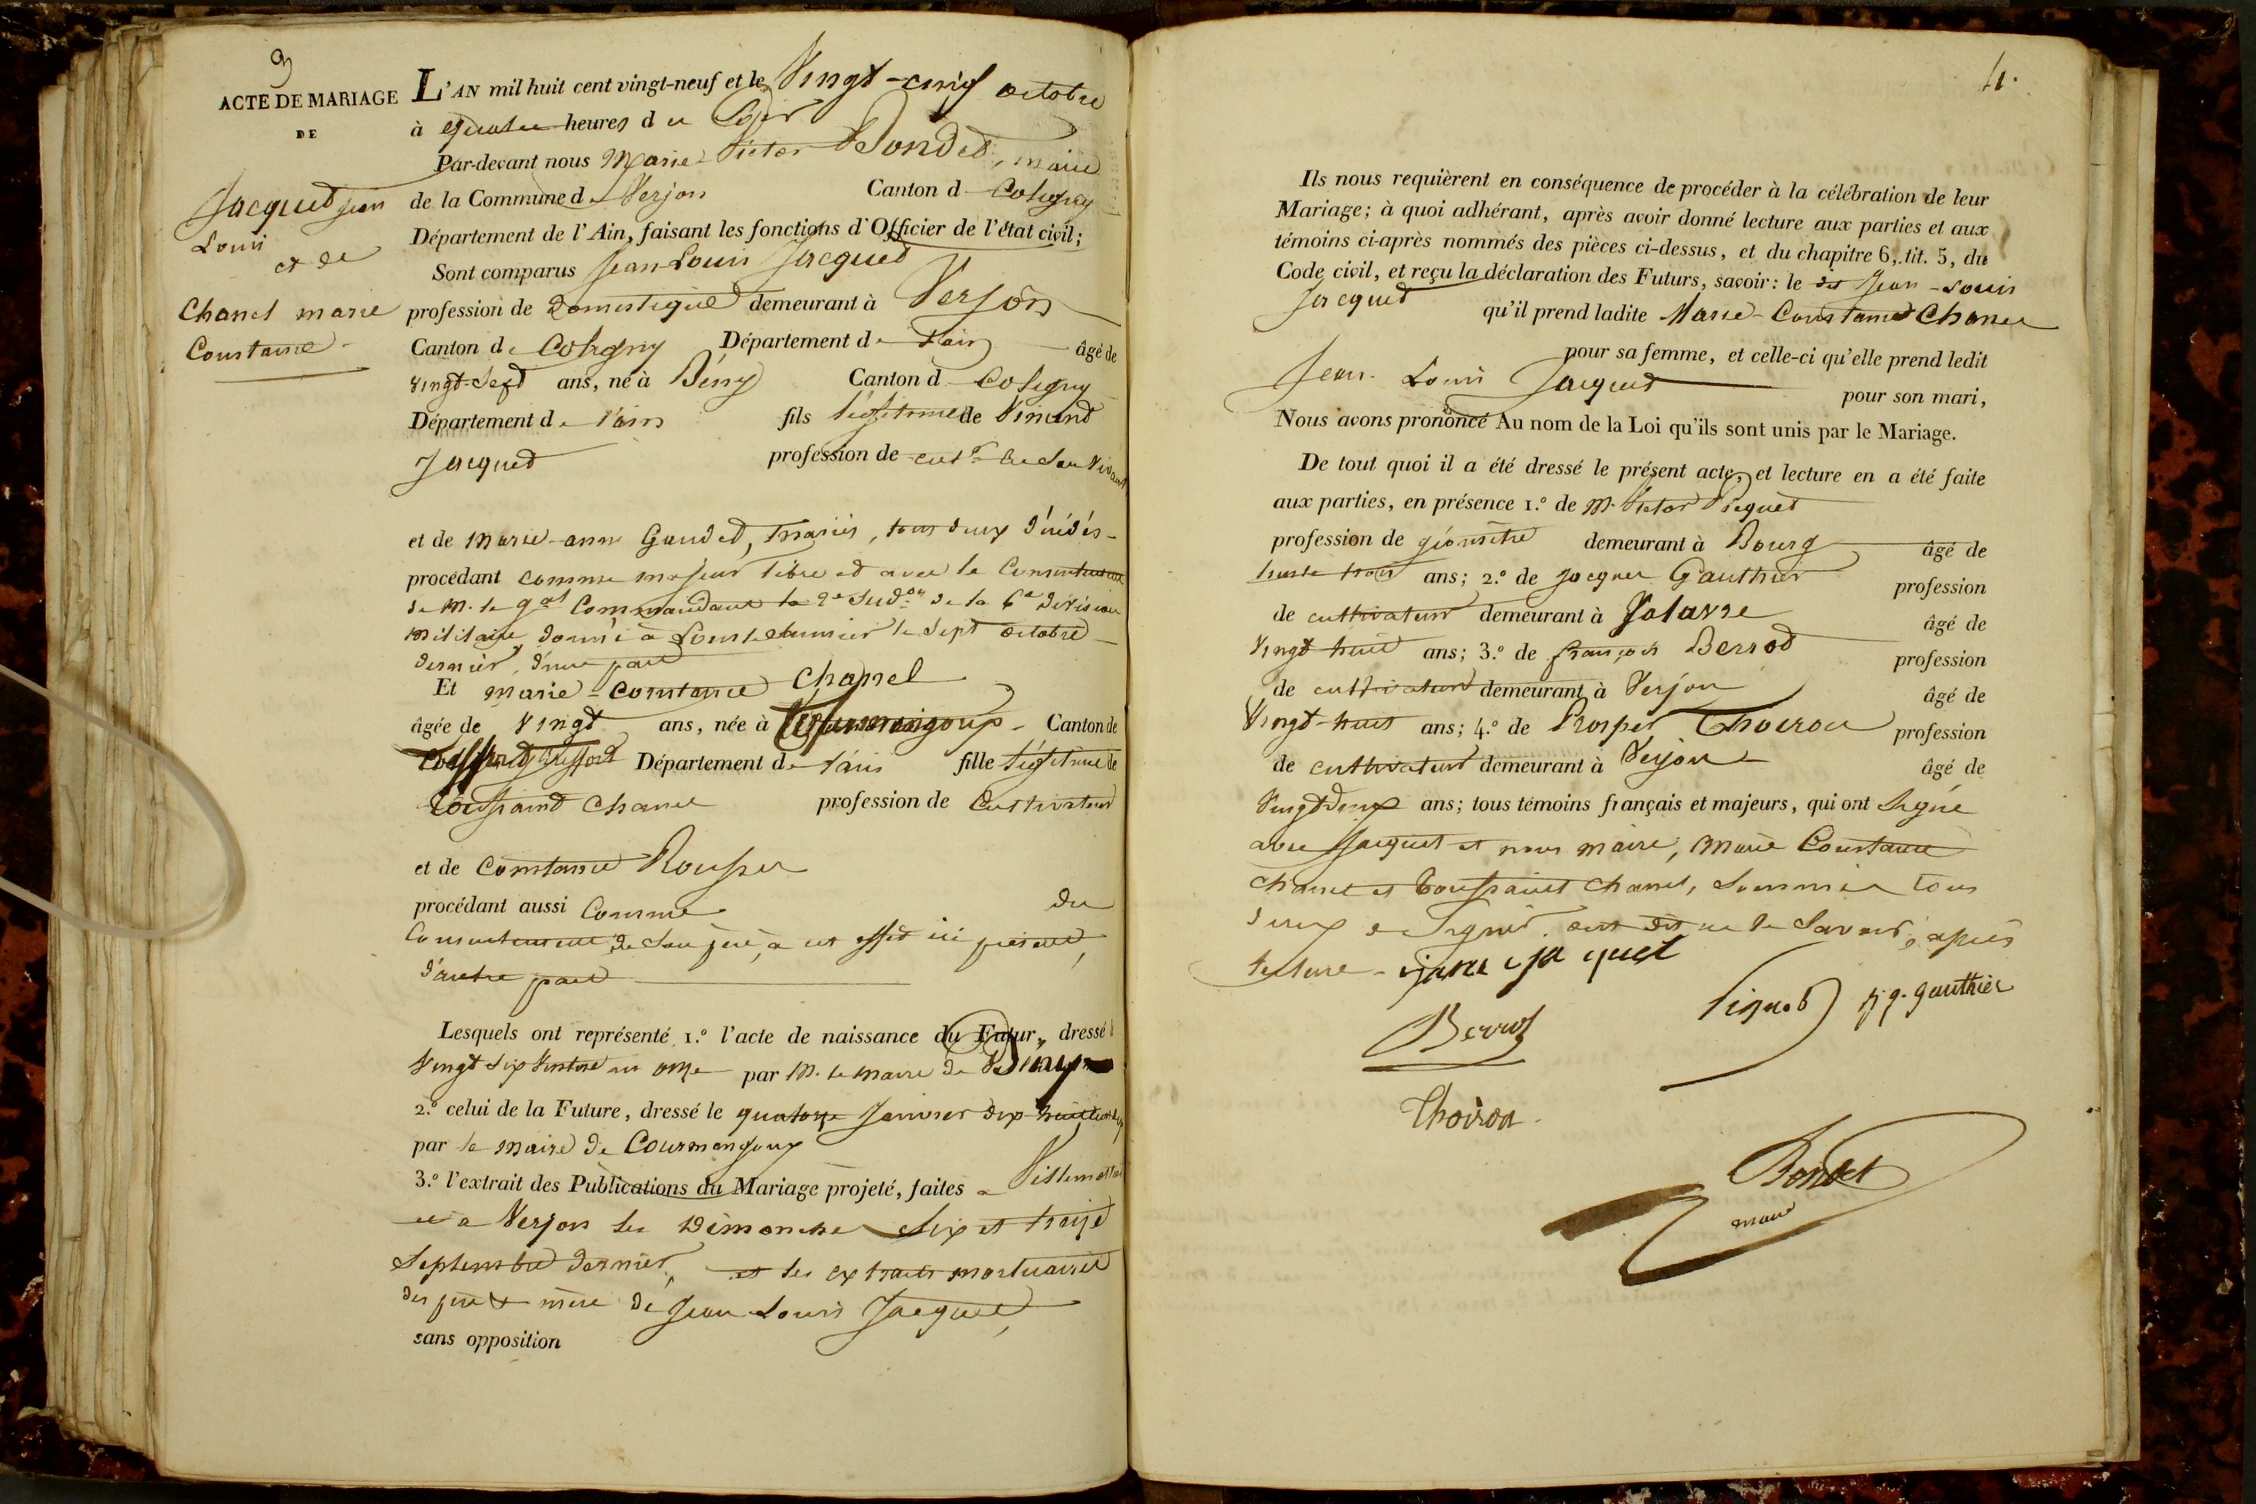 3
ACTE DE MARIAGE
DE
Jacquet jean
Louis
et de
Chanel marie
Constance
L'AN mil huit cent vingt-neuf et le Vingt-cinq octobre
à quatre heures du Soir
Par-devant nous Marie Victor Bondet, maire
de la Commune de Verjon Canton de Coligny
Département de l'Ain, faisant les fonctions d'Officier de l'état civil;
Sont comparus Jean Louis Jacquet
profession de Domestique demeurant à Verjon
Canton de Coligny Département de l'ain âgé de
vingt-Sept ans, né à Bény Canton de Coligny
Département de l'ain fils légitime de Vincent
Jacquet profession de cultr en Son Vivant
et de Marie-anne Gaudet, mariés, tous deux décédés
procédant comme majeur libre et avec le Consentement
de M. le gal Commandant la 2e Sudon de la 6e Division
Militaire donné à Lons le Saunier le Sept octobre
dernier, d'une part
Et marie-constance Chanel
âgée de Vingt ans, née à Courmangoux Canton de
Treffort Département de l'ain fille légitime de
Toussaint Chanel profession de Cultivateur
et de Constance Rousset
procédant aussi Comme du
Consentement de Son père, a cet effet ici présent,
d'autre part
Lesquels ont représenté 1.º l'acte de naissance du Futur, dressé
Vingt Six Ventose an onze par M. le maire de Bény
2.º celui de la Future, dressé le quatorze Janvier dix-huit cent
par le maire de Courmangoux
3.º l'extrait des Publications du Mariage projeté, faites a Villemotier
et a Verjon les Dimanche Six et treize
Septembre dernier, et les extraits mortuaires
des père & mère de Jean Louis Jacquet,
sans opposition
4.
Ils nous requièrent en conséquence de procéder à la célébration de leur
Mariage; à quoi adhérant, après avoir donné lecture aux parties et aux
témoins ci-après nommés des pièces ci-dessus, et du chapitre 6, tit. 5, du
Code civil, et reçu la déclaration des Futurs, savoir: le dit Jean-Louis
Jacquet qu'il prend ladite Marie-Constance Chanel
pour sa femme, et celle-ci qu'elle prend ledit
Jean Louis Jacquet pour son mari,
Nous avons prononcé Au nom de la Loi qu'ils sont unis par le Mariage.
De tout quoi il a été dressé le présent acte, et lecture en a été faite
aux parties, en présence 1.º de M. Victor Piquet
profession de géomètre demeurant à Bourg âgé de
trente trois ans; 2.º de Jacques Gauthier profession
de cultivateur demeurant à Salavre âgé de
Vingt huit ans; 3.º de françois Berrod profession
de cultivateur demeurant à Verjon âgé de
Vingt-huit ans; 4.º de Prosper Thoiron profession
de cultivateur demeurant à Verjon âgé de
Vingt deux ans; tous témoins français et majeurs, qui ont Signé
avec Jacquet et nous maire, Marie Constance
Chanel et Toussaint Chanel, Sommés tous
deux de Signer ont dit ne le Savoir, après
lecture. jaque
Berrod
Piquet
Gauthier
Thoiron
Bondet
maire